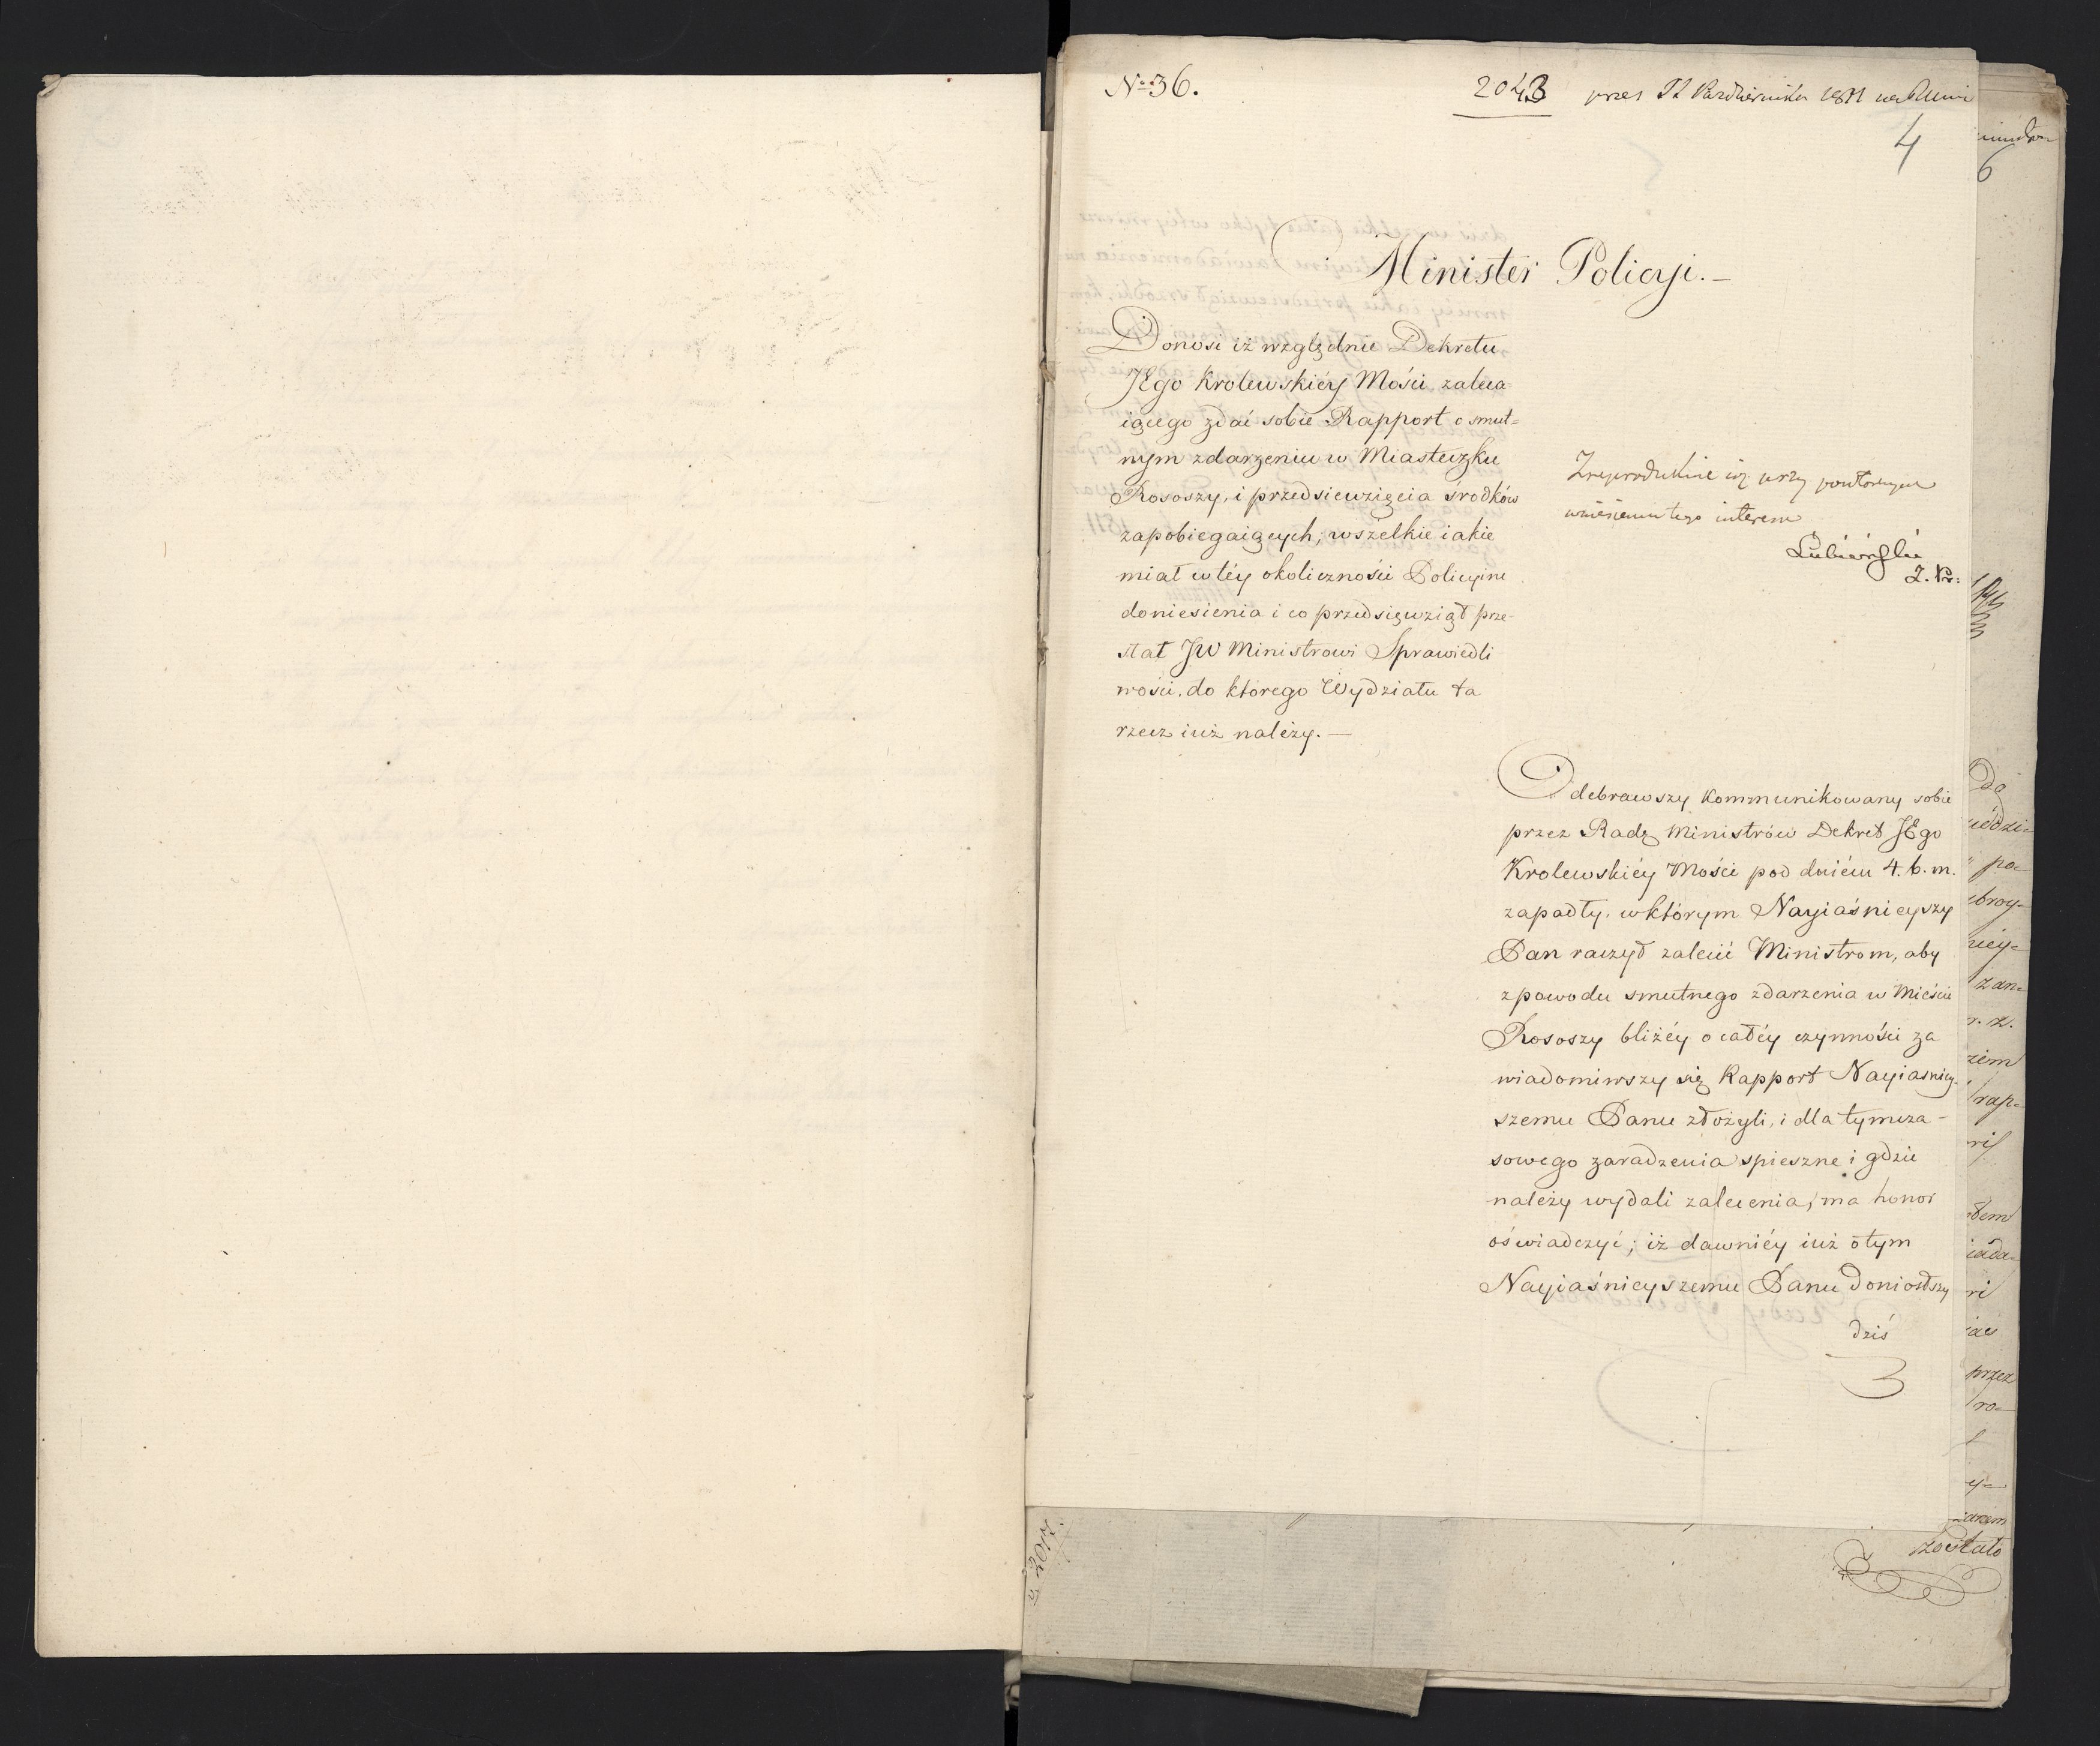 No 36.
2043 prez 12 Października 1811
4
Minister Policyi.—
Donosi iż względnie Dekretu
JEgo Krolewskiéy Mości zaleca=
iącego zdać sobie Rapport o smut=
nym zdarzeniu w Miasteczku
Rososzy, i przedsiewzięcia środków
zapobiegaiących; wszelkie iakie
miał w téy okoliczności Policyine
doniesienia i co przedsięwziął prze-
słał JW Ministrowi Sprawiedli
wości, do którego Wydziału ta
rzecz iuż należy.—
przy powtórnym
wniesieniu tego interessu
Lubieński
Odebrawszy kommunikowany sobie
przez Radę Ministrów Dekret JEgo
Krolewskiéy Mości pod dniém 4. b. m.
zapadły, w którym Nayiaśnieyszy
Pan raczył zalecić Ministrom, aby
z powodu smutnego zdarzenia w Mieście
Rososzy bliżéy o całéy czynności za
wiadomiwszy się Rapport Nayiaśniey-
szemu Panu złożyli, i dla tymcza-
sowego zaradzenia spieszne i gdzie
należy wydali zalecenia, ma honor
oświadczyć; iż dawniéy iuż o tym
Nayiaśnieyszemu Panu doniosłszy
dziś
6
przez
zostało